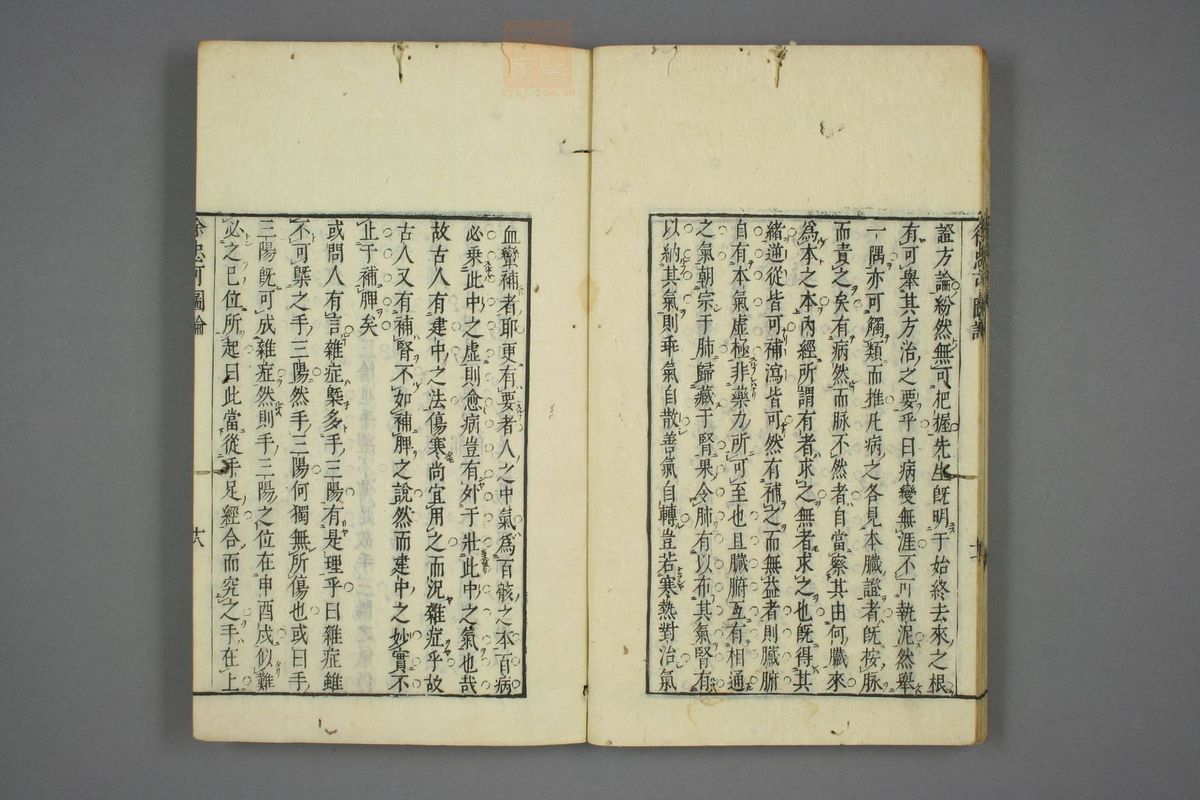 證方論紛然無可把握先生既明于始終去來之根
有可舉其方治之要乎曰病變無涯不可執泥然舉
一隅亦可觸類而推凡病之各見本臟證者既按脉
而責之矣有病然而脉不然者自當察其由何臟來
為本之本內經所謂有者求之無者求之也既得其
緒逆從皆可補瀉皆可然有補之而無益者則臟腑
自有本氣虛極非藥力所可至也且臟腑互有相通
之氣朝宗于肺歸藏于腎果令肺有以布其氣腎有
以納其氣則乖氣自散善氣自轉豈若寒熱對治氣
血蠻補者耶更有要者人之中氣為百骸之本百病
必乘此中之虛則愈病豈有外于壯此中之氣也哉
故古人有建中之法傷寒尚宜用之而況雜症乎故
古人又有補腎不如補脾之說然而建中之妙實不
止于補脾矣
或問人有言雜症槩多手三陽有是理乎曰雜症雖
不可槩之手三陽然手三陽何獨無所傷也或曰手
三陽既可成雜症然則手三陽之位在申酉戌似難
必之巳位所起曰此當從手足經合而究之手在上
徐忠可圖論
十八